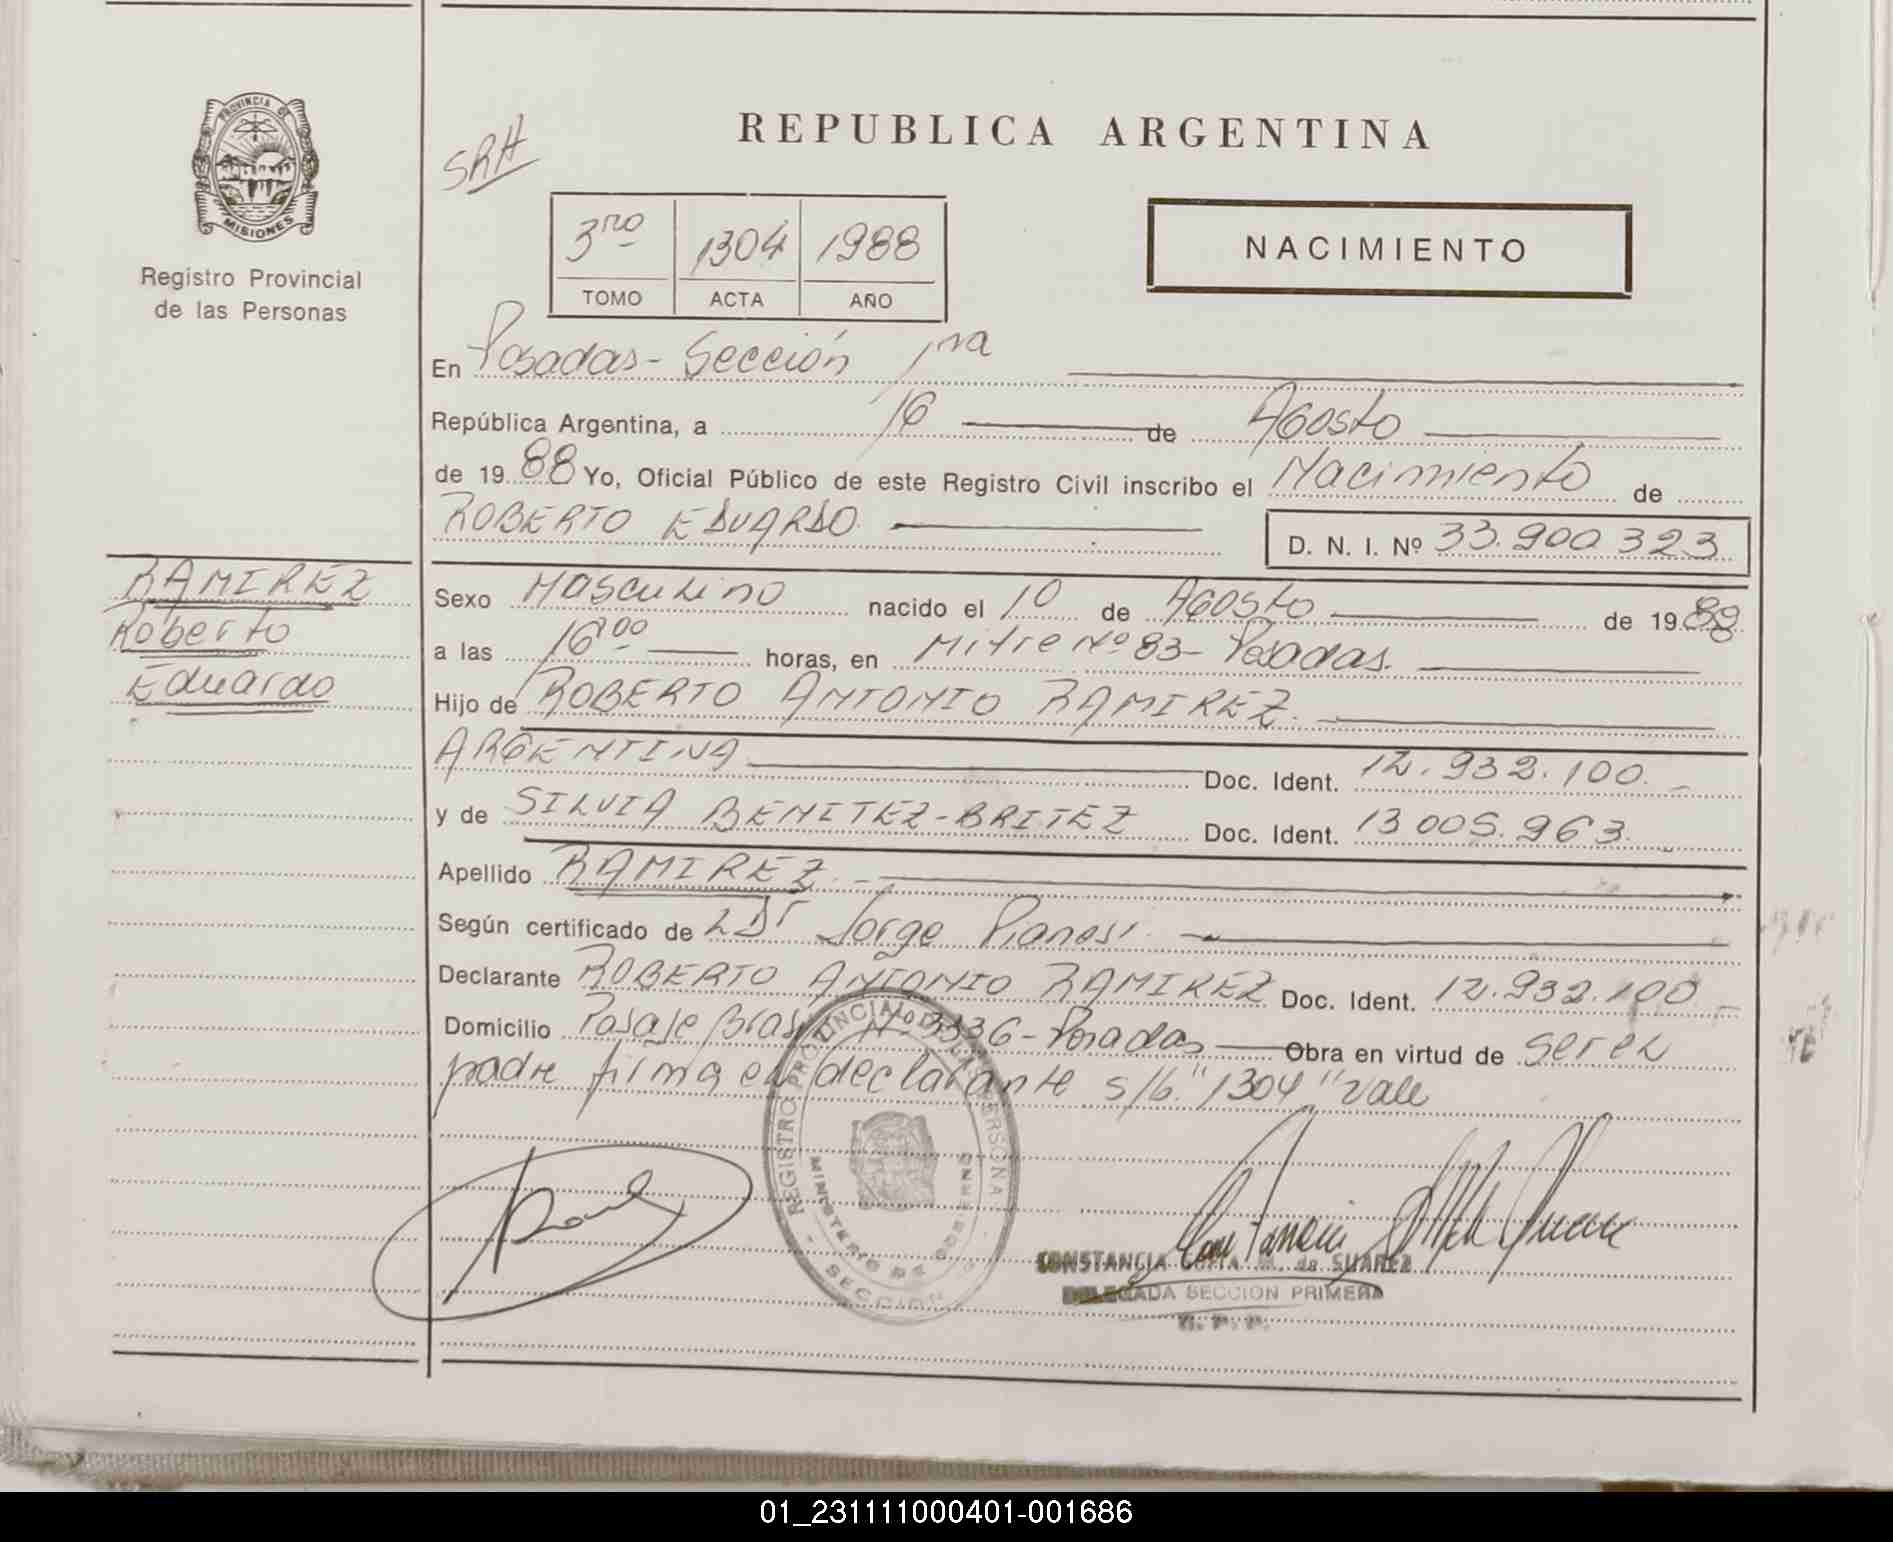 PROVINCIA DE
MISIONES
Registro Provincial
de las Personas
SRH
REPUBLICA ARGENTINA
3ro 1304 1988
TOMO ACTA AÑO
NACIMIENTO
En Posadas - Sección 1ra
República Argentina, a 16 de Agosto
de 19 88 Yo, Oficial Público de este Registro Civil inscribo el Nacimiento de
ROBERTO EDUARDO D. N. I. Nº 33.900.323
RAMIREZ
Roberto
Eduardo
Sexo Masculino nacido el 1º de Agosto de 1988
a las 16,00 horas, en Mitre Nº 83 - Posadas.
Hijo de ROBERTO ANTONIO RAMIREZ.
ARGENTINA Doc. Ident. 12.932.100.
y de SILVIA BENITEZ-BRITEZ Doc. Ident. 13 005.963.
Apellido RAMIREZ.
Según certificado de Dr Jorge Pianesi
Declarante ROBERTO ANTONIO RAMIREZ Doc. Ident. 12.932.100
Domicilio Pasaje Brasil Nº 3336 - Posadas Obra en virtud de ser el
padre firma el declarante s/b. "1304" vale
REGISTRO PROVINCIAL DE LAS PERSONAS
MINISTERIO DE GOBIERNO
SECCION
CONSTANCIA de SUAREZ
DELEGADA SECCION PRIMERA
01_231111000401-001686